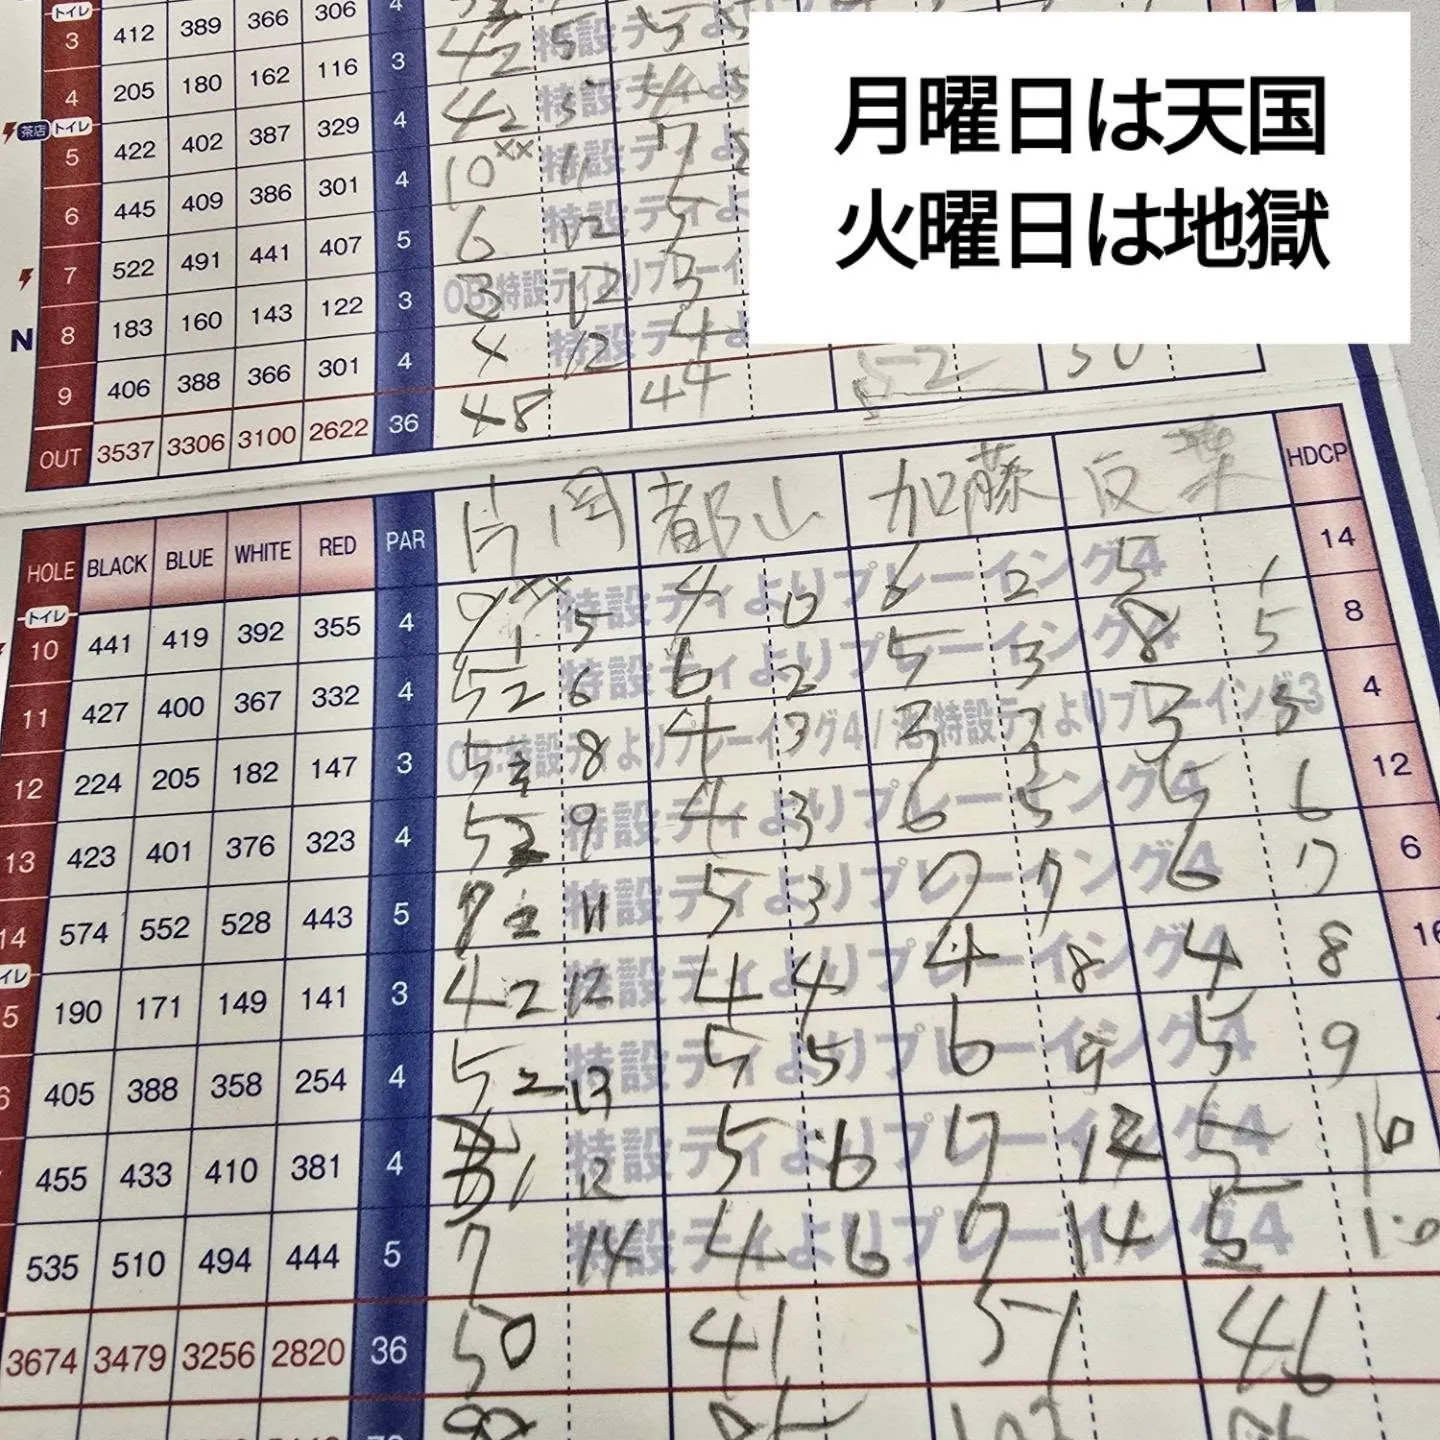 月曜日は天国
火曜日は地獄
トイレ
3 412 389 366 306 4
4 205 180 162 116 3 42 5
茶店 トイレ
5 422 402 387 329 4 42 5
6 445 409 386 301 4 10 XX 11 7
7 522 491 441 407 5 6 12 5
N 8 183 160 143 122 3 3 12 3
9 406 388 366 301 4 4 12 4
OUT 3537 3306 3100 2622 36 48 44 52 50
HOLE BLACK BLUE WHITE RED PAR 片岡 都山 加藤 HDCP
トイレ
10 441 419 392 355 4 特設ティよりプレーイング4 9 XX 1 5 4 0 6 2 5 1 14
11 427 400 367 332 4 特設ティよりプレーイング4 5 2 6 6 2 5 3 8 5 8
12 224 205 182 147 3 OB:特設ティよりプレーイング4/池:特設ティよりプレーイング3 5 8 4 3 3 3 3 5 4
13 423 401 376 323 4 特設ティよりプレーイング4 5 9 4 3 6 5 5 6 12
14 574 552 528 443 5 特設ティよりプレーイング4 7 2 11 5 3 7 7 6 7 6
イレ
5 190 171 149 141 3 特設ティよりプレーイング4 4 2 12 4 4 4 8 4 8 16
6 405 388 358 254 4 特設ティよりプレーイング4 5 2 13 5 5 6 9 5 9
455 433 410 381 4 特設ティよりプレーイング4 1 12 5 6 7 12 5 10
535 510 494 444 5 特設ティよりプレーイング4 7 14 4 6 7 14 5 10
3674 3479 3256 2820 36 50 41 51 46